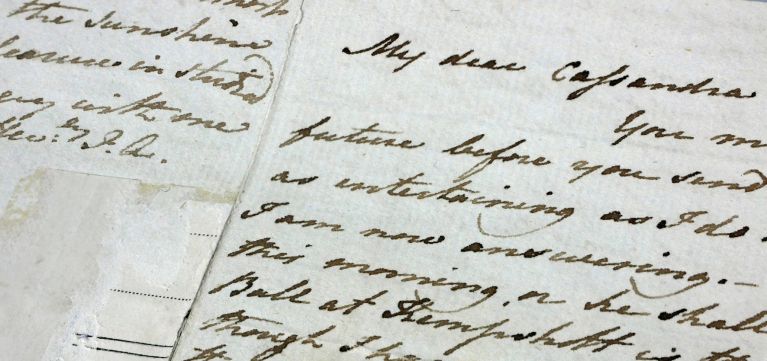 the sunshine
in
with me
J.A.
My dear Cassandra
You m
future before you send
as entertaining as I do.
I am now answering.—
this morning, or he shall
Ball at Kempshott is
though She